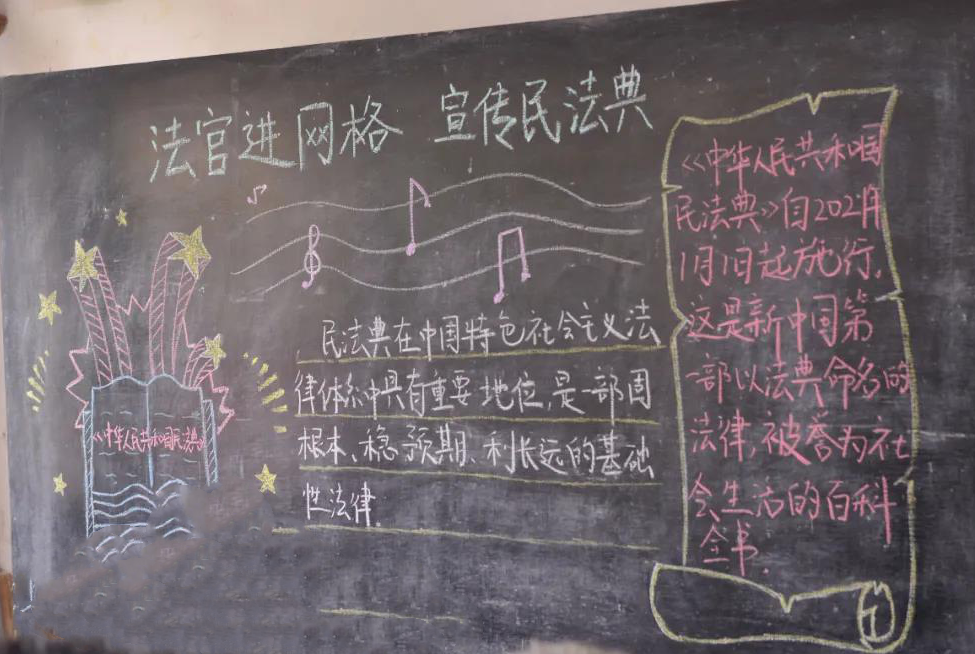 法官进网格 宣传民法典
《中华人民共和国民法典》
民法典在中国特色社会主义法
律体系中具有重要地位,是一部固
根本、稳预期、利长远的基础
性法律.
《中华人民共和国
民法典》自2021年
1月1日起施行.
这是新中国第
一部以法典命名的
法律,被誉为社
会生活的百科
全书.